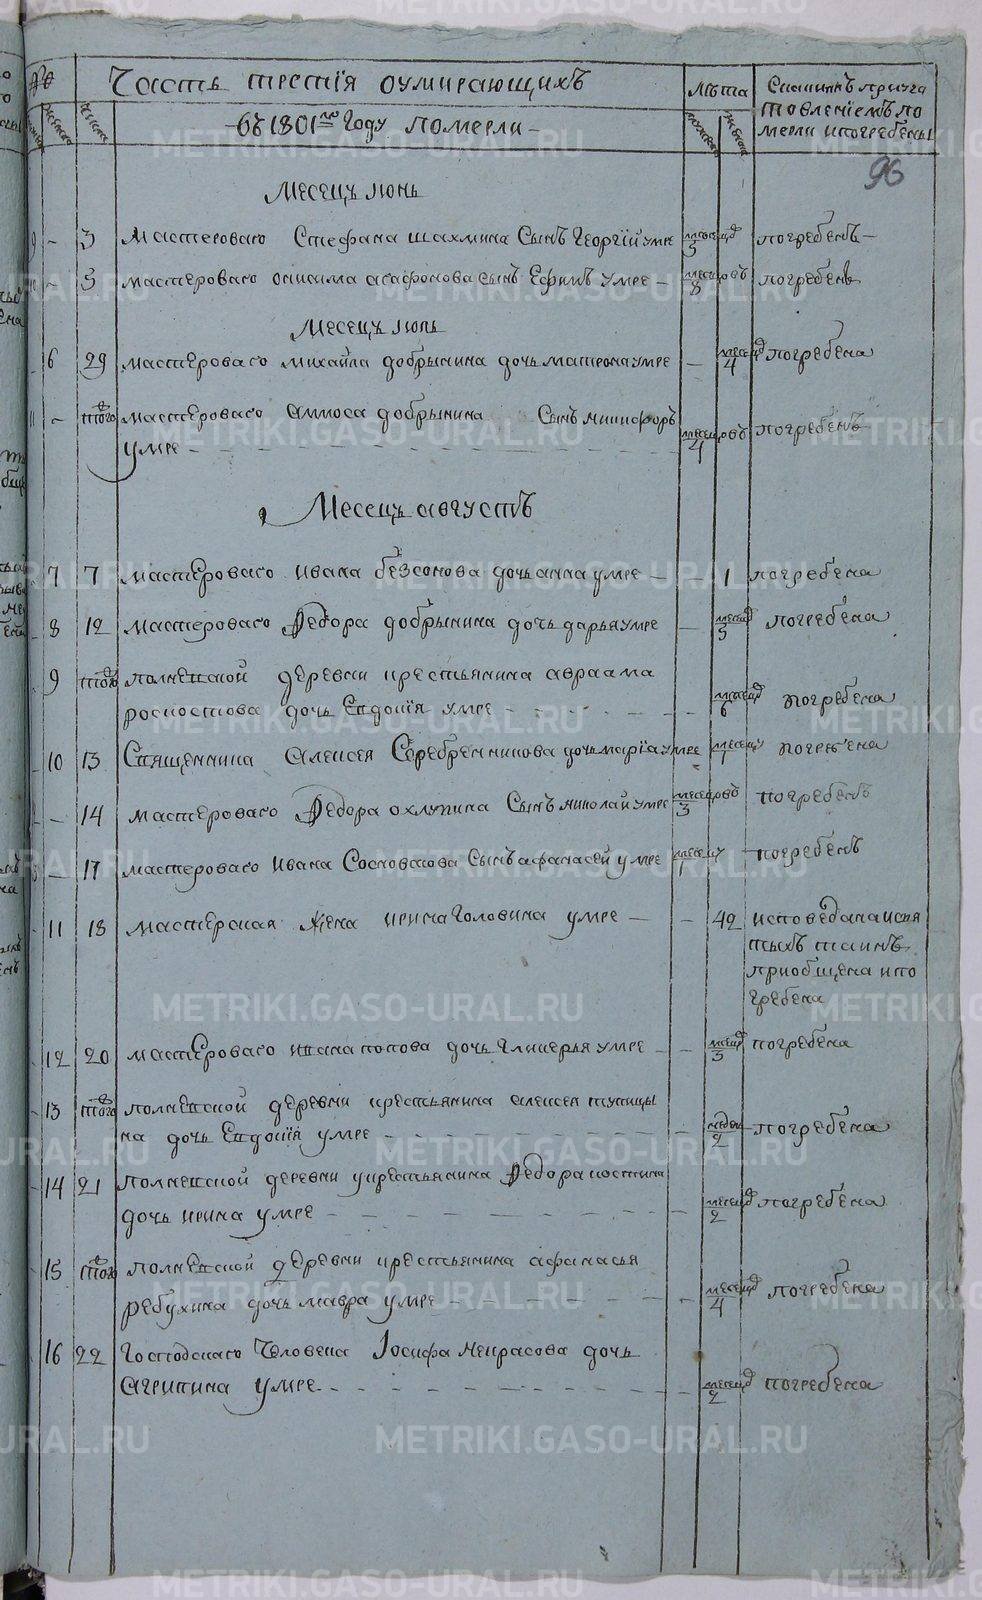 № Часть третія оумирающихъ Лѣта Скакимъ приуга
товленіемъ по
мерли и погребены
въ 1801мъ Году померли
96
Месецъ июнь
9 - 3 Мастероваго Стефана шахмина Сынъ Георгій умре месецъ 5 погребенъ
- 5 мастероваго онисима агафонова сынъ Ефимъ умре месецовъ 8 погребенъ
Месецъ июль
6 29 мастероваго михайла добрынина дочь матрона умре - месецъ 4 погребена
11 - того мастероваго аммоса добрынина Сынъ никифоръ
умре месецовъ 4 погребенъ
Месецъ августъ
7 7 мастероваго ивана безсонова дочь анна умре - 1 погребена
8 12 мастероваго Федора добрынина дочь дарья умре - месецъ 5 погребена
9 того полневской деревни крестьянина авраама
роскостова дочь Евдокія умре месецъ 6 погребена
10 13 Священника алексея Серебренникова дочь марія умре месецъ 1 погребена
- 14 мастероваго Федора охлупина Сынъ николай умре месецовъ 3 погребенъ
- 17 мастероваго ивана Сословскова Сынъ афанасей умре месецъ 1 погребенъ
11 18 мастерская жена ирина Головина умре - 42 исповедана исвя
тыхъ таинъ
приобщена и по
гребена
12 20 мастероваго ивана попова дочь гликерья умре - месецъ 3 погребена
13 того полневской деревни крестьянина алексея тупицы
на дочь Евдокія умре недель 2 погребена
14 21 полневской деревни укрестьянина Федора костина
дочь ирина умре месецъ 2 погребена
15 того полневской деревни крестьянина афанасья
ребухина дочь мавра умре месецъ 4 погребена
16 22 Господскаго Человека Іосифа некрасова дочь
агрипина умре месецъ 2 погребена
METRIKI.GASO-URAL.RU